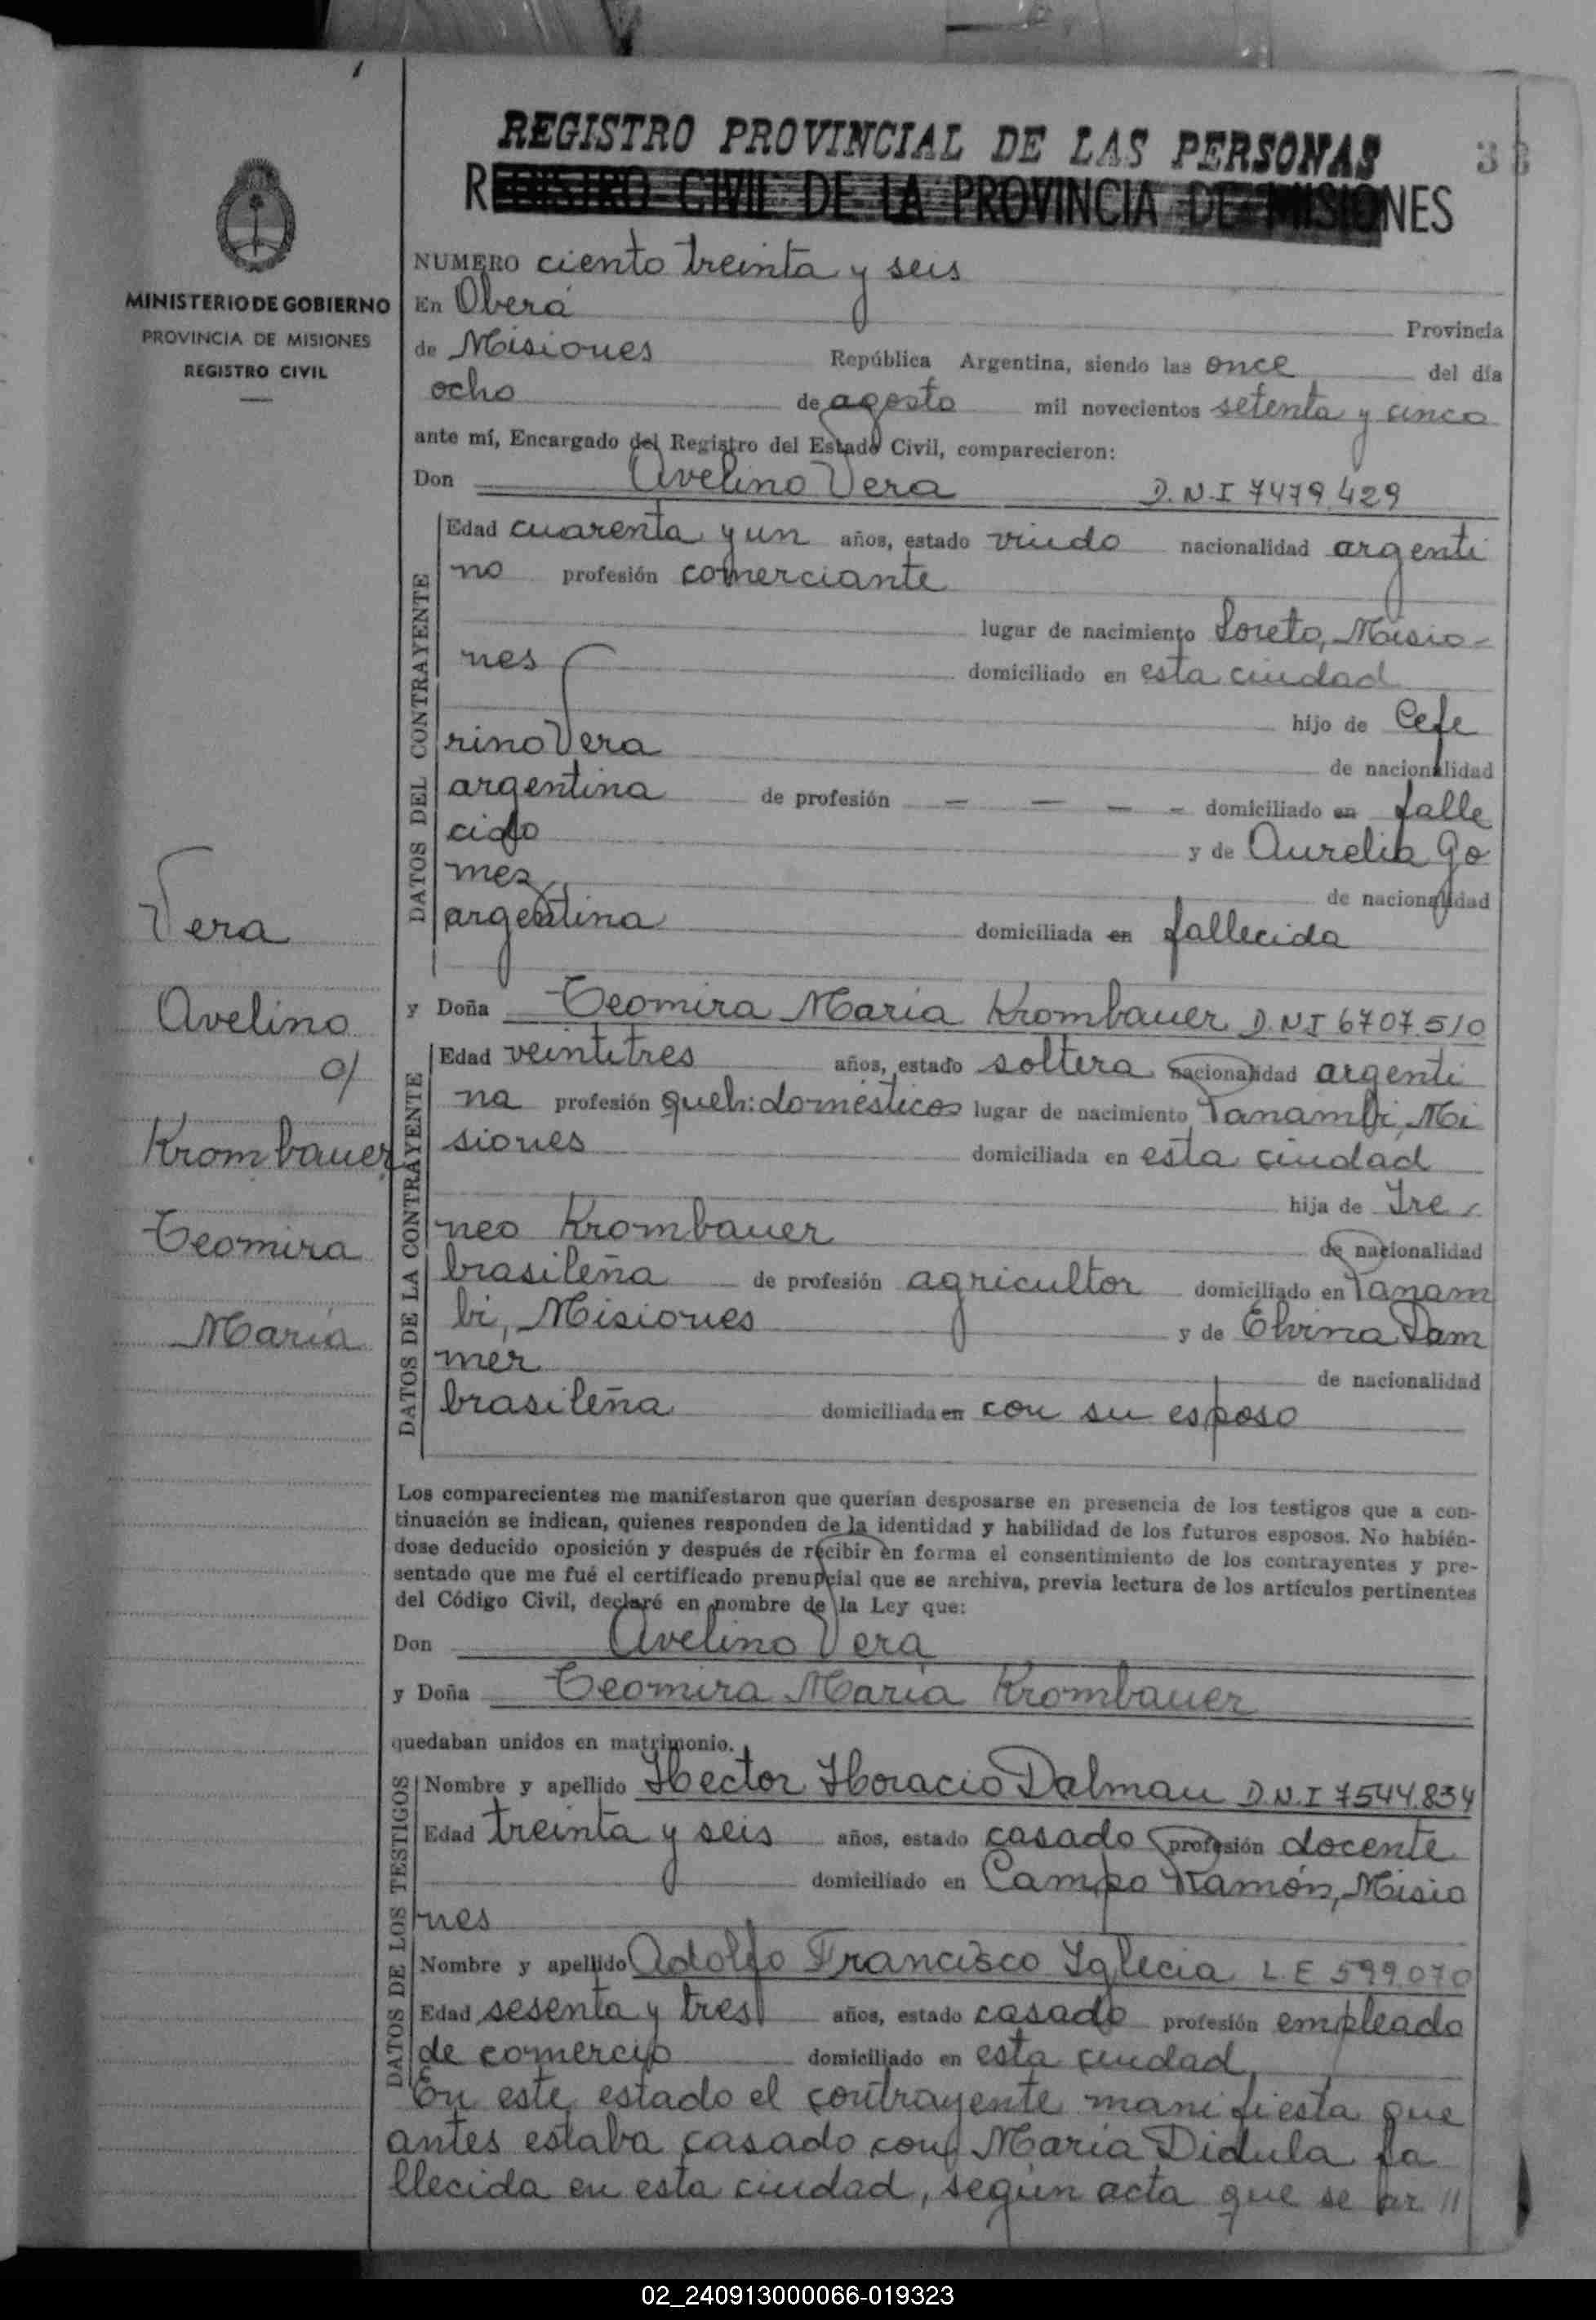 REGISTRO PROVINCIAL DE LAS PERSONAS
REGISTRO CIVIL DE LA PROVINCIA DE MISIONES
MINISTERIO DE GOBIERNO
PROVINCIA DE MISIONES
REGISTRO CIVIL
Vera
Avelino
c/
Krombauer
Teomira
María
NUMERO ciento treinta y seis
En Oberá Provincia
de Misiones República Argentina, siendo las once del día
ocho de agosto mil novecientos setenta y cinco
ante mí, Encargado del Registro del Estado Civil, comparecieron:
Don Avelino Vera D.N.I 7479.429
DATOS DEL CONTRAYENTE
Edad cuarenta y un años, estado viudo nacionalidad argenti
no profesión comerciante
lugar de nacimiento Loreto, Misio-
nes domiciliado en esta ciudad
hijo de Cefe
rino Vera de nacionalidad
argentina de profesión — — — - domiciliado en falle
cido y de Aurelia Go
mez de nacionalidad
argentina domiciliada en fallecida
y Doña Teomira María Krombauer D.N.I 6707.510
DATOS DE LA CONTRAYENTE
Edad veintitres años, estado soltera nacionalidad argenti
na profesión queh: domésticos lugar de nacimiento Panambi, Mi
siones domiciliada en esta ciudad
hija de Ire
neo Krombauer de nacionalidad
brasileña de profesión agricultor domiciliado en Panam
bi, Misiones y de Elvira Dam
mer de nacionalidad
brasileña domiciliada en con su esposo
Los comparecientes me manifestaron que querían desposarse en presencia de los testigos que a con-
tinuación se indican, quienes responden de la identidad y habilidad de los futuros esposos. No habién-
dose deducido oposición y después de recibir en forma el consentimiento de los contrayentes y pre-
sentado que me fué el certificado prenupcial que se archiva, previa lectura de los artículos pertinentes
del Código Civil, declaré en nombre de la Ley que:
Don Avelino Vera
y Doña Teomira María Krombauer
quedaban unidos en matrimonio.
DATOS DE LOS TESTIGOS
Nombre y apellido Hector Horacio Dalmau D.N.I 7544.834
Edad treinta y seis años, estado casado profesión docente
domiciliado en Campo Ramón, Misio
nes
Nombre y apellido Adolfo Francisco Iglecia L.E 599.070
Edad sesenta y tres años, estado casado profesión empleado
de comercio domiciliado en esta ciudad
En este estado el contrayente manifiesta que
antes estaba casado con María Didula fa
llecida en esta ciudad, según acta que se ar //
02_240913000066-019323